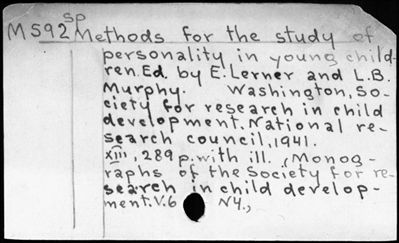 sp
M592 Methods for the study of
personality in young child-
ren. Ed. by E. Lerner and L.B.
Murphy. Washington, So-
ciety for research in child
development, National re-
search council, 1941.
XIII, 289 p. with ill. (Monog-
raphs of the Society for re-
search in child develop-
ment. V.6 N4.,